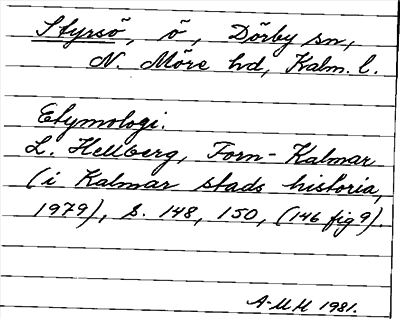 Styrsö, ö, Dörby sn,
N. Möre hd, Kalm. l.
Etymologi.
L. Hellberg, Forn-Kalmar
(i Kalmar stads historia,
1979), s. 148, 150, (146 fig 9).
A-MH 1981.